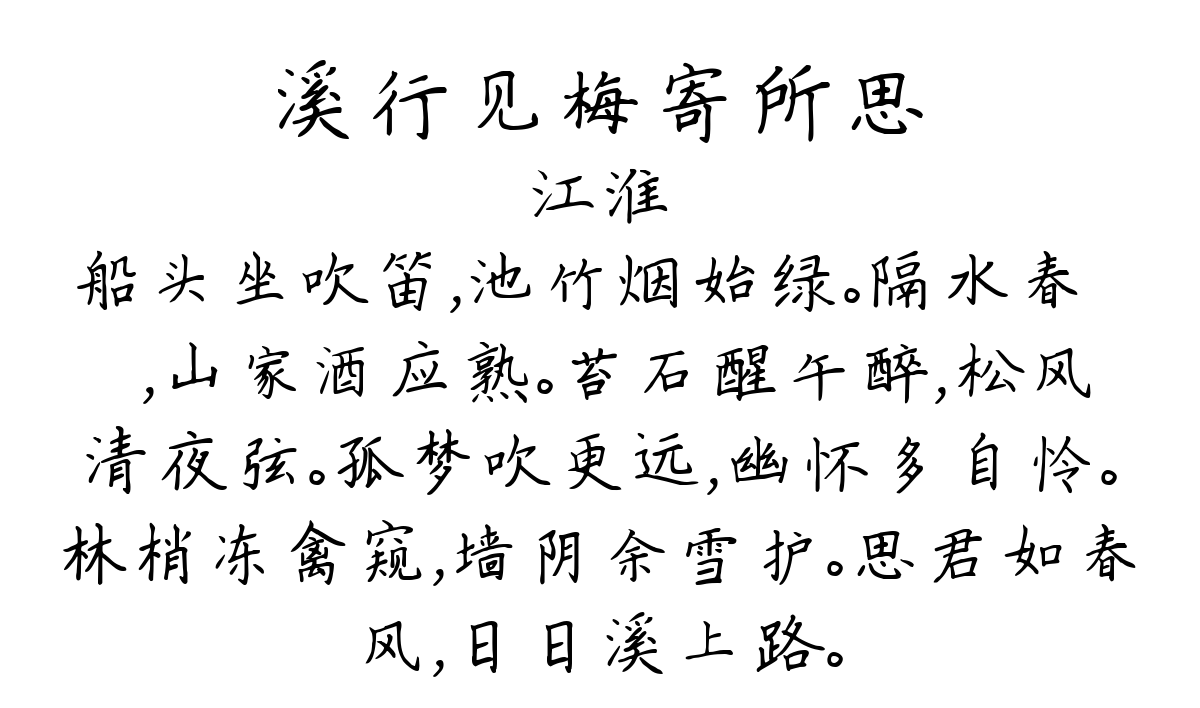 溪行见梅寄所思
江淮
船头坐吹笛,池竹烟始绿。隔水春
,山家酒应熟。苔石醒午醉,松风
清夜弦。孤梦吹更远,幽怀多自怜。
林梢冻禽窥,墙阴余雪护。思君如春
风,日日溪上路。